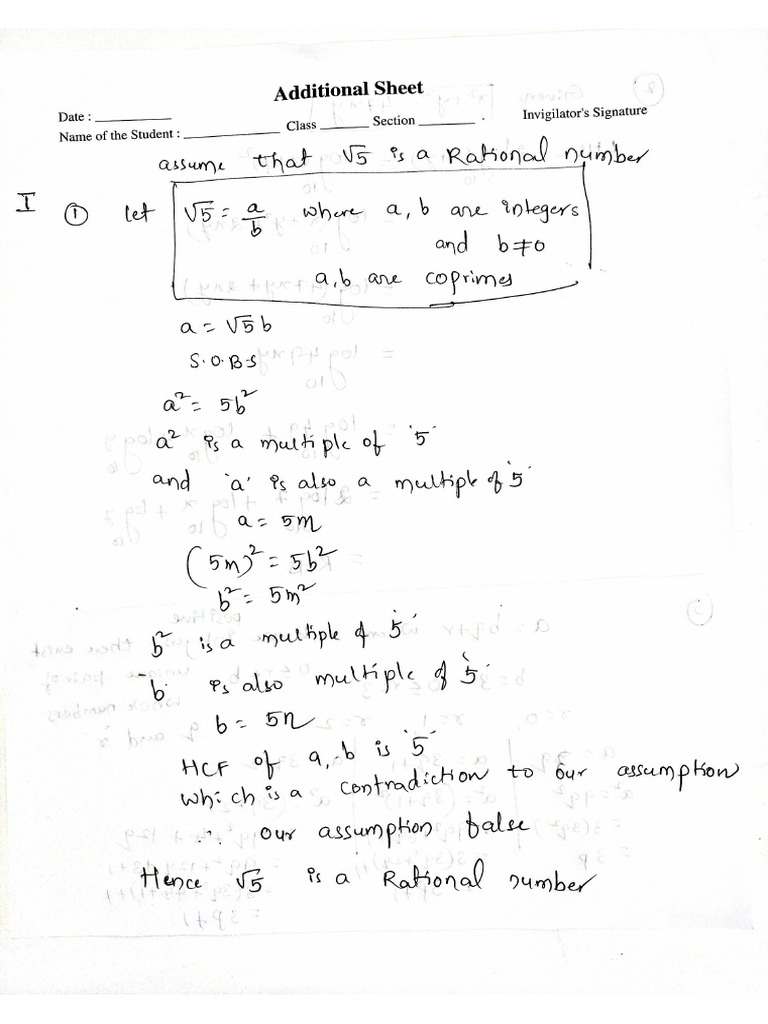 Additional Sheet
Date : ____________
Invigilator's Signature
Name of the Student : ____________ Class ______ Section ________ .
assume that √5 is a Rational number
I ① let √5 = a/b where a, b are integers
and b≠0
a,b are coprimes
a = √5 b
S.O.B.S
a² = 5b²
a² is a multiple of '5'
and 'a' is also a multiple of '5'
a = 5m
(5m)² = 5b²
b² = 5m²
b² is a multiple of '5'
b is also multiple of '5'
b = 5n
HCF of a, b is '5'
which is a contradiction to our assumption
∴ our assumption false
Hence √5 is a Rational number